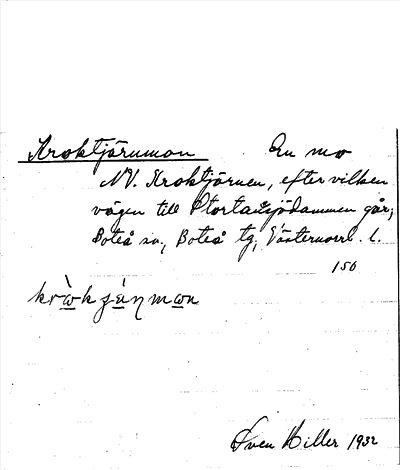 Kroktjärnmon En mo
NV. Kroktjärnen, efter vilken
vägen till Stortansjödammen går;
Boteå sn, Boteå tg, Västernorrl. l.
150
Sven Hiller 1932